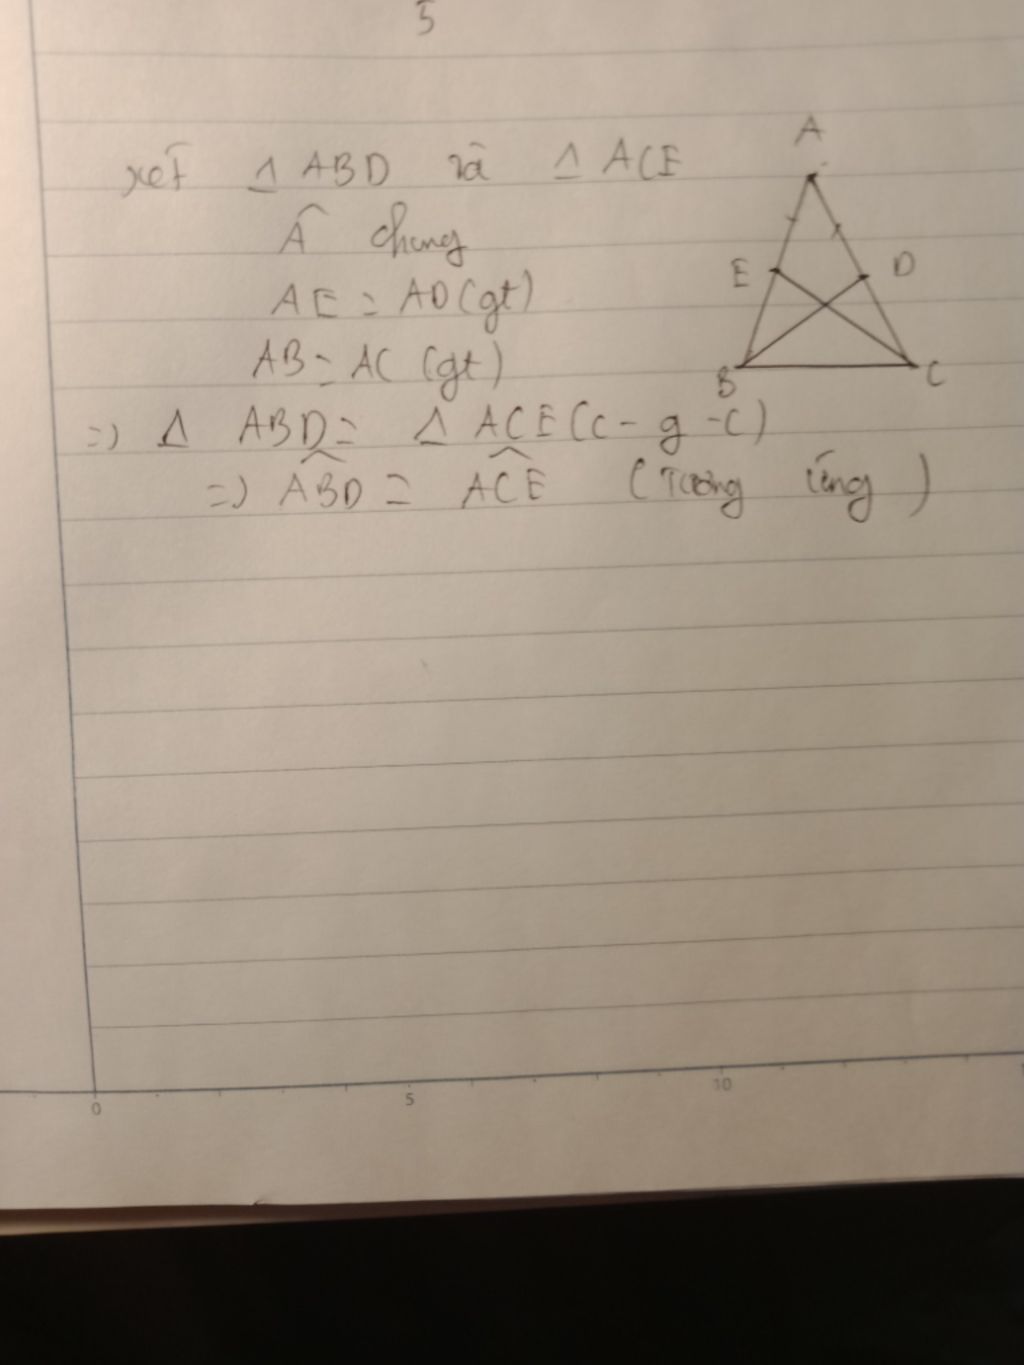 5
xét Δ ABD và Δ ACE
Â chung
AE = AD (gt)
AB = AC (gt)
=) Δ ABD = Δ ACE (c - g - c)
=) \widehat{ABD} = \widehat{ACE} (Tương ứng)
A
E
D
B
C
0 5 10